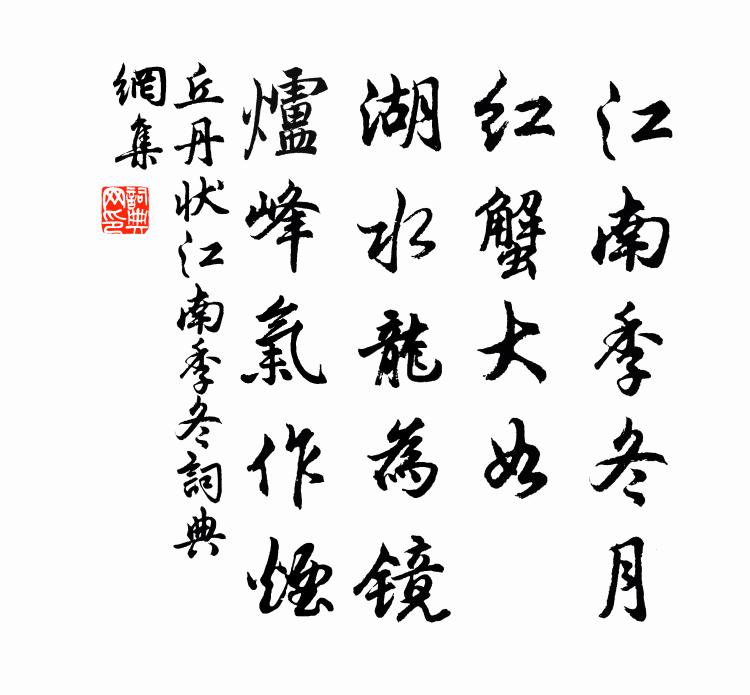 江南季冬月
红蟹大如
湖水龍為镜
爐峰氣作煙
丘丹状江南季冬詞典
網集
詞典网印